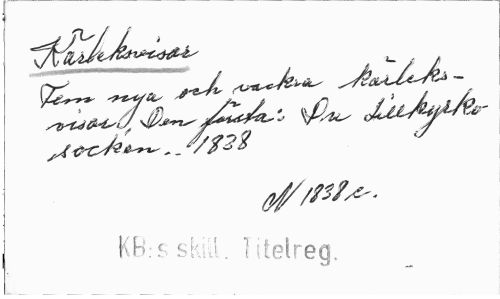 Kärleksvisor
Fem nya och vackra kärleks-
visor, Den första: Du Lillkyrko
socken.. 1838
N 1838 c.
KB:s skill. Titelreg.